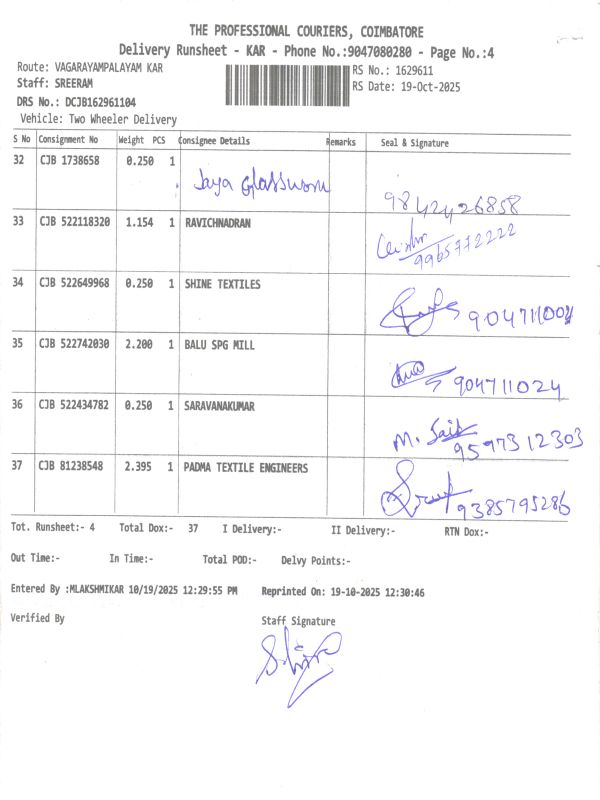 THE PROFESSIONAL COURIERS, COIMBATORE
Delivery Runsheet - KAR - Phone No.:9047080280 - Page No.:4
Route: VAGARAYAMPALAYAM KAR RS No.: 1629611
Staff: SREERAM RS Date: 19-Oct-2025
DRS No.: DCJB162961104
Vehicle: Two Wheeler Delivery
S No Consignment No Weight PCS Consignee Details Remarks Seal & Signature
32 CJB 1738658 0.250 1 Jaya 9842426858
33 CJB 522118320 1.154 1 RAVICHNADRAN 9965772222
34 CJB 522649968 0.250 1 SHINE TEXTILES
35 CJB 522742030 2.200 1 BALU SPG MILL 904711024
36 CJB 522434782 0.250 1 SARAVANAKUMAR M. 9597312303
37 CJB 81238548 2.395 1 PADMA TEXTILE ENGINEERS 9385795286
Tot. Runsheet:- 4 Total Dox:- 37 I Delivery:- II Delivery:- RTN Dox:-
Out Time:- In Time:- Total POD:- Delvy Points:-
Entered By :MLAKSHMIKAR 10/19/2025 12:29:55 PM Reprinted On: 19-10-2025 12:30:46
Verified By Staff Signature